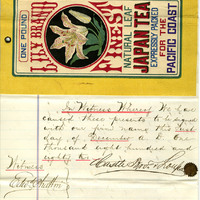 ONE POUND
LILY BRAND
FINEST
NATURAL LEAF
JAPAN TEA
EXPRESSLY PACKED
FOR THE
PACIFIC COAST
In Witness Whereof We have
caused these presents to be signed
with our firm name this first
day of A. D. One
thousand eight hundred and
eighty
Witness